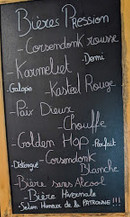 Bières Pression
- Corsendonk rousse
- Karmeliet - Demi
- Galopin - Kasteel Rouge
- Paix Dieux
- Chouffe
- Golden Hop - Parfait
- Détergé - Corsendonk Blanche
- Bière sans Alcool
- Bière Hivernale
- Selon Humeur de la PATRONNE !!!